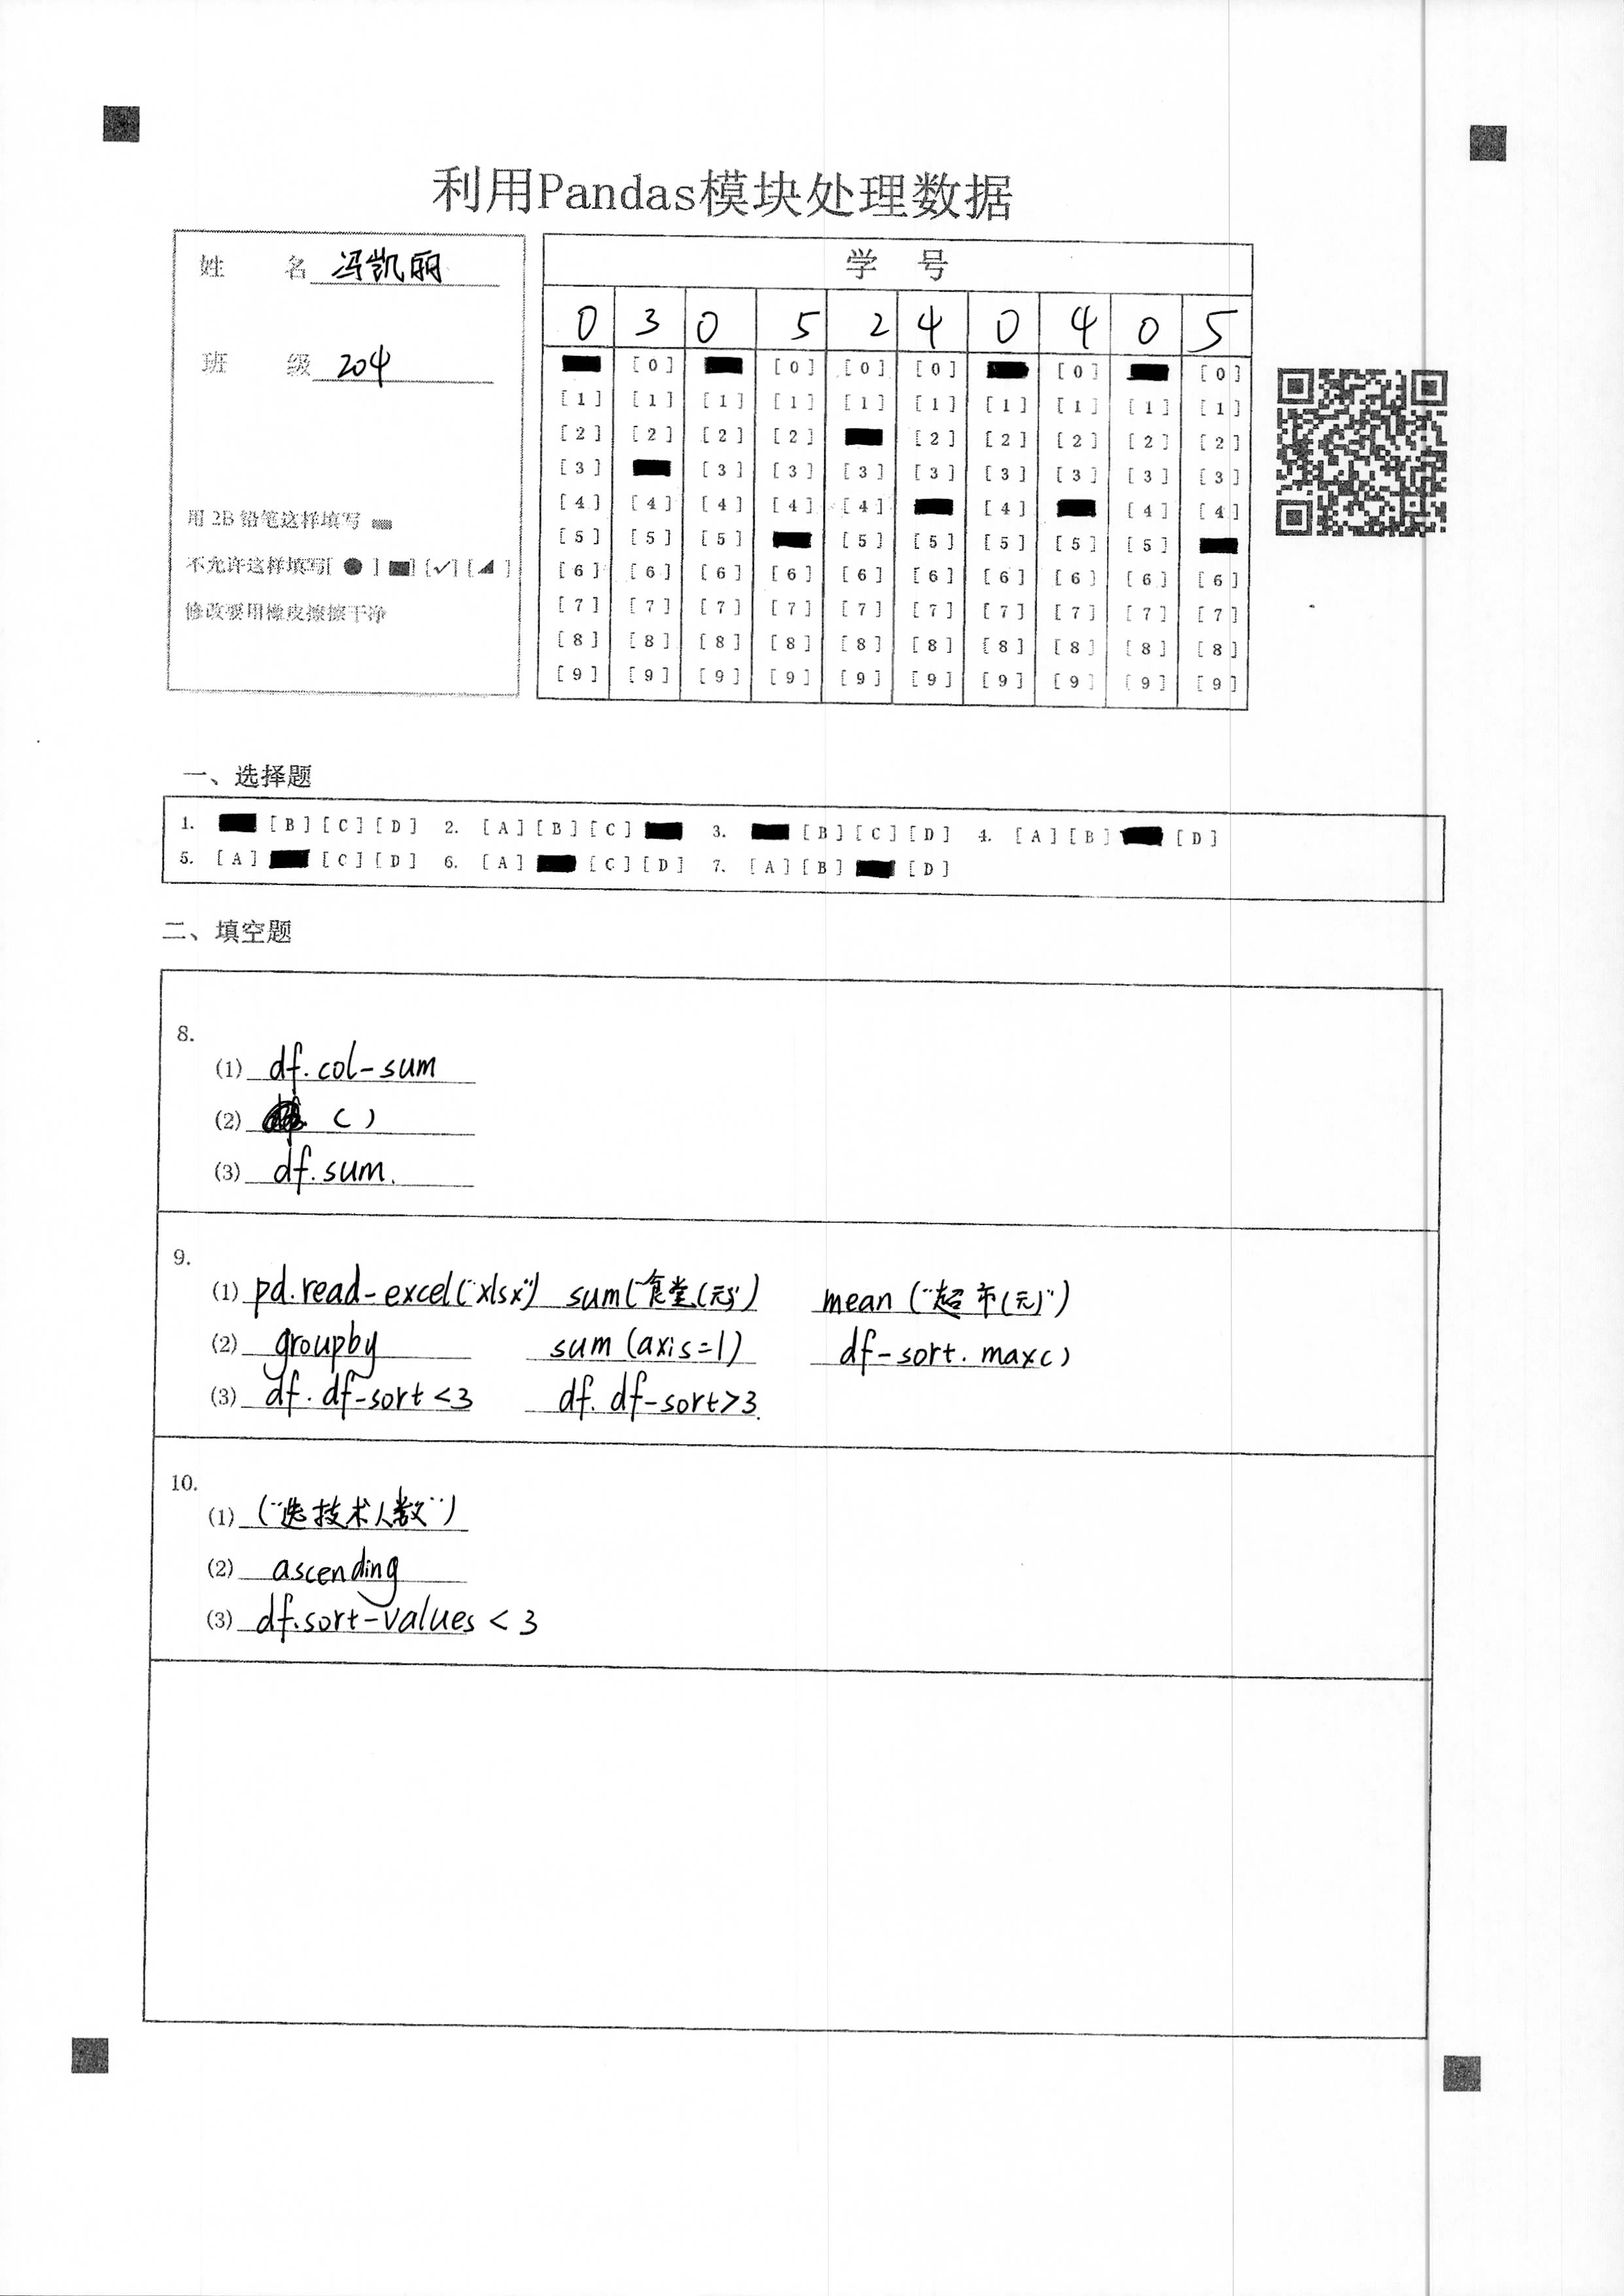 利用Pandas模块处理数据
姓 名 冯凯丽
班 级 204
用 2B 铅笔这样填写
不允许这样填写[ ● ] [■] [✓] [◢ ]
修改要用橡皮擦擦干净
学 号
0 3 0 5 2 4 0 4 0 5
[0] [0] [0] [0] [0] [0]
[1] [1] [1] [1] [1] [1] [1] [1] [1] [1]
[2] [2] [2] [2] [2] [2] [2] [2] [2]
[3] [3] [3] [3] [3] [3] [3] [3] [3]
[4] [4] [4] [4] [4] [4] [4] [4]
[5] [5] [5] [5] [5] [5] [5] [5]
[6] [6] [6] [6] [6] [6] [6] [6] [6] [6]
[7] [7] [7] [7] [7] [7] [7] [7] [7] [7]
[8] [8] [8] [8] [8] [8] [8] [8] [8] [8]
[9] [9] [9] [9] [9] [9] [9] [9] [9] [9]
一、选择题
1. [B] [C] [D] 2. [A] [B] [C] 3. [B] [C] [D] 4. [A] [B] [D]
5. [A] [C] [D] 6. [A] [C] [D] 7. [A] [B] [D]
二、填空题
8.
(1) df.col-sum
(2) ( )
(3) df.sum.
9.
(1) pd.read-excel("xlsx") sum("食堂(元)") mean("超市(元)")
(2) groupby sum(axis=1) df-sort.max()
(3) df.df-sort<3 df.df-sort>3.
10.
(1) ("选技术人数")
(2) ascending
(3) df.sort-values < 3